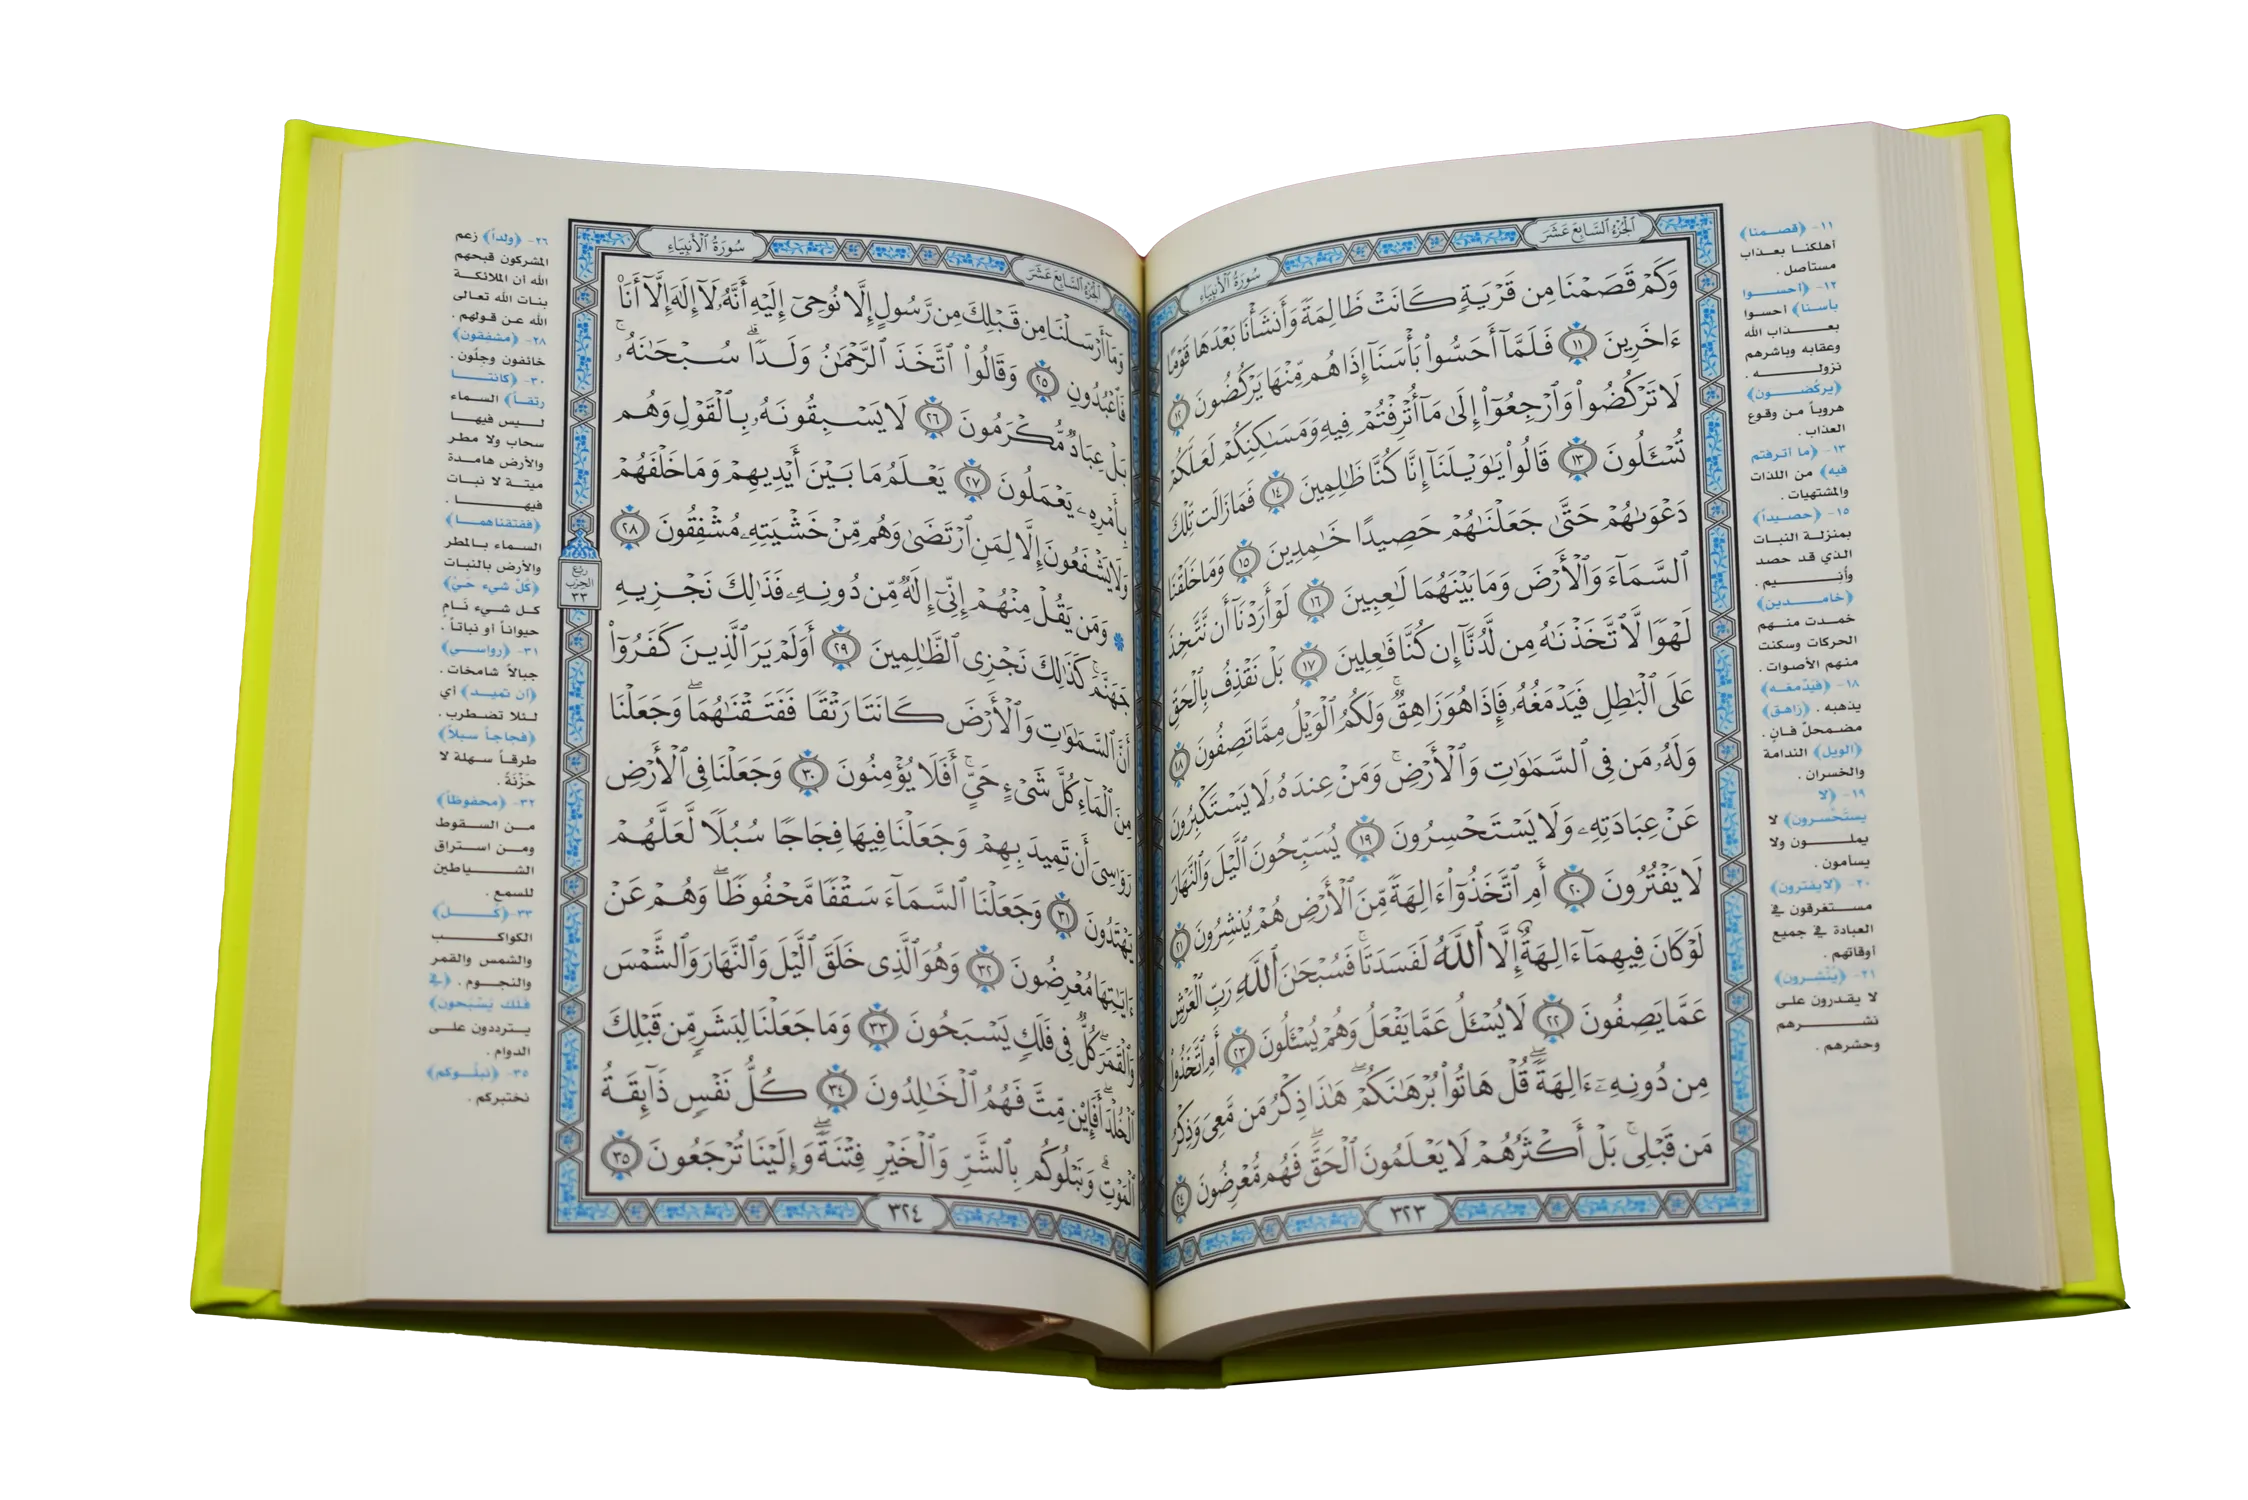 الجُزْءُ السَّابِعَ عَشَرَ
سُورَةُ الأَنْبِيَاءِ
وَكَمْ قَصَمْنَا مِن قَرْيَةٍ كَانَتْ ظَالِمَةً وَأَنشَأْنَا بَعْدَهَا قَوْمًا
ءَاخَرِينَ ١١ فَلَمَّآ أَحَسُّوا۟ بَأْسَنَآ إِذَا هُم مِّنْهَا يَرْكُضُونَ ١٢
لَا تَرْكُضُوا۟ وَٱرْجِعُوٓا۟ إِلَىٰ مَآ أُتْرِفْتُمْ فِيهِ وَمَسَـٰكِنِكُمْ لَعَلَّكُمْ
تُسْـَٔلُونَ ١٣ قَالُوا۟ يَـٰوَيْلَنَآ إِنَّا كُنَّا ظَـٰلِمِينَ ١٤ فَمَا زَالَت تِّلْكَ
دَعْوَىٰهُمْ حَتَّىٰ جَعَلْنَـٰهُمْ حَصِيدًا خَـٰمِدِينَ ١٥ وَمَا خَلَقْنَا
ٱلسَّمَآءَ وَٱلْأَرْضَ وَمَا بَيْنَهُمَا لَـٰعِبِينَ ١٦ لَوْ أَرَدْنَآ أَن نَّتَّخِذَ
لَهْوًا لَّٱتَّخَذْنَـٰهُ مِن لَّدُنَّآ إِن كُنَّا فَـٰعِلِينَ ١٧ بَلْ نَقْذِفُ بِٱلْحَقِّ
عَلَى ٱلْبَـٰطِلِ فَيَدْمَغُهُۥ فَإِذَا هُوَ زَاهِقٌ ۚ وَلَكُمُ ٱلْوَيْلُ مِمَّا تَصِفُونَ ١٨
وَلَهُۥ مَن فِى ٱلسَّمَـٰوَٰتِ وَٱلْأَرْضِ ۚ وَمَنْ عِندَهُۥ لَا يَسْتَكْبِرُونَ
عَنْ عِبَادَتِهِۦ وَلَا يَسْتَحْسِرُونَ ١٩ يُسَبِّحُونَ ٱلَّيْلَ وَٱلنَّهَارَ
لَا يَفْتُرُونَ ٢٠ أَمِ ٱتَّخَذُوٓا۟ ءَالِهَةً مِّنَ ٱلْأَرْضِ هُمْ يُنشِرُونَ ٢١
لَوْ كَانَ فِيهِمَآ ءَالِهَةٌ إِلَّا ٱللَّهُ لَفَسَدَتَا ۚ فَسُبْحَـٰنَ ٱللَّهِ رَبِّ ٱلْعَرْشِ
عَمَّا يَصِفُونَ ٢٢ لَا يُسْـَٔلُ عَمَّا يَفْعَلُ وَهُمْ يُسْـَٔلُونَ ٢٣ أَمِ ٱتَّخَذُوا۟
مِن دُونِهِۦٓ ءَالِهَةً ۖ قُلْ هَاتُوا۟ بُرْهَـٰنَكُمْ ۖ هَـٰذَا ذِكْرُ مَن مَّعِىَ وَذِكْرُ
مَن قَبْلِى ۚ بَلْ أَكْثَرُهُمْ لَا يَعْلَمُونَ ٱلْحَقَّ ۖ فَهُم مُّعْرِضُونَ ٢٤
٣٢٣
١١- ﴿قصمنا﴾
أهلكنا بعذاب
مستأصل .
١٢- ﴿أحسوا
بأسنا﴾ أحسوا
بعذاب الله
وعقابه وباشرهم
نزوله .
﴿يركضون﴾
هروباً من وقوع
العذاب .
١٣- ﴿ما أترفتم
فيه﴾ من اللذات
والمشتهيات .
١٥- ﴿حصيداً﴾
بمنزلة النبات
الذي قد حصد
وأنيم .
﴿خامدين﴾
خمدت منهم
الحركات وسكنت
منهم الأصوات .
١٨- ﴿فيدمغه﴾
يذهبه . ﴿زاهق﴾
مضمحلّ فانٍ .
﴿الويل﴾ الندامة
والخسران .
١٩- ﴿لا
يستحسرون﴾ لا
يملون ولا
يسأمون .
٢٠- ﴿لايفترون﴾
مستغرقون في
العبادة في جميع
أوقاتهم .
٢١- ﴿يُنْشرون﴾
لا يقدرون على
نشرهم
وحشرهم .
الجُزْءُ السَّابِعَ عَشَرَ
سُورَةُ الأَنْبِيَاءِ
وَمَآ أَرْسَلْنَا مِن قَبْلِكَ مِن رَّسُولٍ إِلَّا نُوحِىٓ إِلَيْهِ أَنَّهُۥ لَآ إِلَـٰهَ إِلَّآ أَنَا۠
فَٱعْبُدُونِ ٢٥ وَقَالُوا۟ ٱتَّخَذَ ٱلرَّحْمَـٰنُ وَلَدًا ۗ سُبْحَـٰنَهُۥ ۚ
بَلْ عِبَادٌ مُّكْرَمُونَ ٢٦ لَا يَسْبِقُونَهُۥ بِٱلْقَوْلِ وَهُم
بِأَمْرِهِۦ يَعْمَلُونَ ٢٧ يَعْلَمُ مَا بَيْنَ أَيْدِيهِمْ وَمَا خَلْفَهُمْ
وَلَا يَشْفَعُونَ إِلَّا لِمَنِ ٱرْتَضَىٰ وَهُم مِّنْ خَشْيَتِهِۦ مُشْفِقُونَ ٢٨
۞ وَمَن يَقُلْ مِنْهُمْ إِنِّىٓ إِلَـٰهٌ مِّن دُونِهِۦ فَذَٰلِكَ نَجْزِيهِ
جَهَنَّمَ ۚ كَذَٰلِكَ نَجْزِى ٱلظَّـٰلِمِينَ ٢٩ أَوَلَمْ يَرَ ٱلَّذِينَ كَفَرُوٓا۟
أَنَّ ٱلسَّمَـٰوَٰتِ وَٱلْأَرْضَ كَانَتَا رَتْقًا فَفَتَقْنَـٰهُمَا ۖ وَجَعَلْنَا
مِنَ ٱلْمَآءِ كُلَّ شَىْءٍ حَىٍّ ۖ أَفَلَا يُؤْمِنُونَ ٣٠ وَجَعَلْنَا فِى ٱلْأَرْضِ
رَوَٰسِىَ أَن تَمِيدَ بِهِمْ وَجَعَلْنَا فِيهَا فِجَاجًا سُبُلًا لَّعَلَّهُمْ
يَهْتَدُونَ ٣١ وَجَعَلْنَا ٱلسَّمَآءَ سَقْفًا مَّحْفُوظًا ۖ وَهُمْ عَنْ
ءَايَـٰتِهَا مُعْرِضُونَ ٣٢ وَهُوَ ٱلَّذِى خَلَقَ ٱلَّيْلَ وَٱلنَّهَارَ وَٱلشَّمْسَ
وَٱلْقَمَرَ ۖ كُلٌّ فِى فَلَكٍ يَسْبَحُونَ ٣٣ وَمَا جَعَلْنَا لِبَشَرٍ مِّن قَبْلِكَ
ٱلْخُلْدَ ۖ أَفَإِي۟ن مِّتَّ فَهُمُ ٱلْخَـٰلِدُونَ ٣٤ كُلُّ نَفْسٍ ذَآئِقَةُ
ٱلْمَوْتِ ۗ وَنَبْلُوكُم بِٱلشَّرِّ وَٱلْخَيْرِ فِتْنَةً ۖ وَإِلَيْنَا تُرْجَعُونَ ٣٥
٣٢٤
ربع
الحزب
٣٣
٢٦- ﴿ولداً﴾ زعم
المشركون قبحهم
الله أن الملائكة
بنات الله تعالى
الله عن قولهم .
٢٨- ﴿مشفقون﴾
خائفون وجلّون .
٣٠- ﴿كانتا
رتقاً﴾ السماء
ليس فيها
سحاب ولا مطر
والأرض هامدة
ميتة لا نبات
فيها .
﴿ففتقناهما﴾
السماء بالمطر
والأرض بالنبات
﴿كُلّ شيء حيّ﴾
كل شيء نَامٍ
حيواناً أو نباتاً .
٣١- ﴿رواسي﴾
جبالاً شامخات .
﴿أن تميد﴾ أي
لئلا تضطرب .
﴿فجاجاً سبلاً﴾
طرقاً سهلة لا
حَزْنَةً .
٣٢- ﴿محفوظاً﴾
من السقوط
ومن استراق
الشياطين
للسمع .
٣٣- ﴿كلّ﴾
الكواكب
والشمس والقمر
والنجوم . ﴿في
فلك يَسْبحون﴾
يترددون على
الدوام .
٣٥- ﴿نبلوكم﴾
نختبركم .